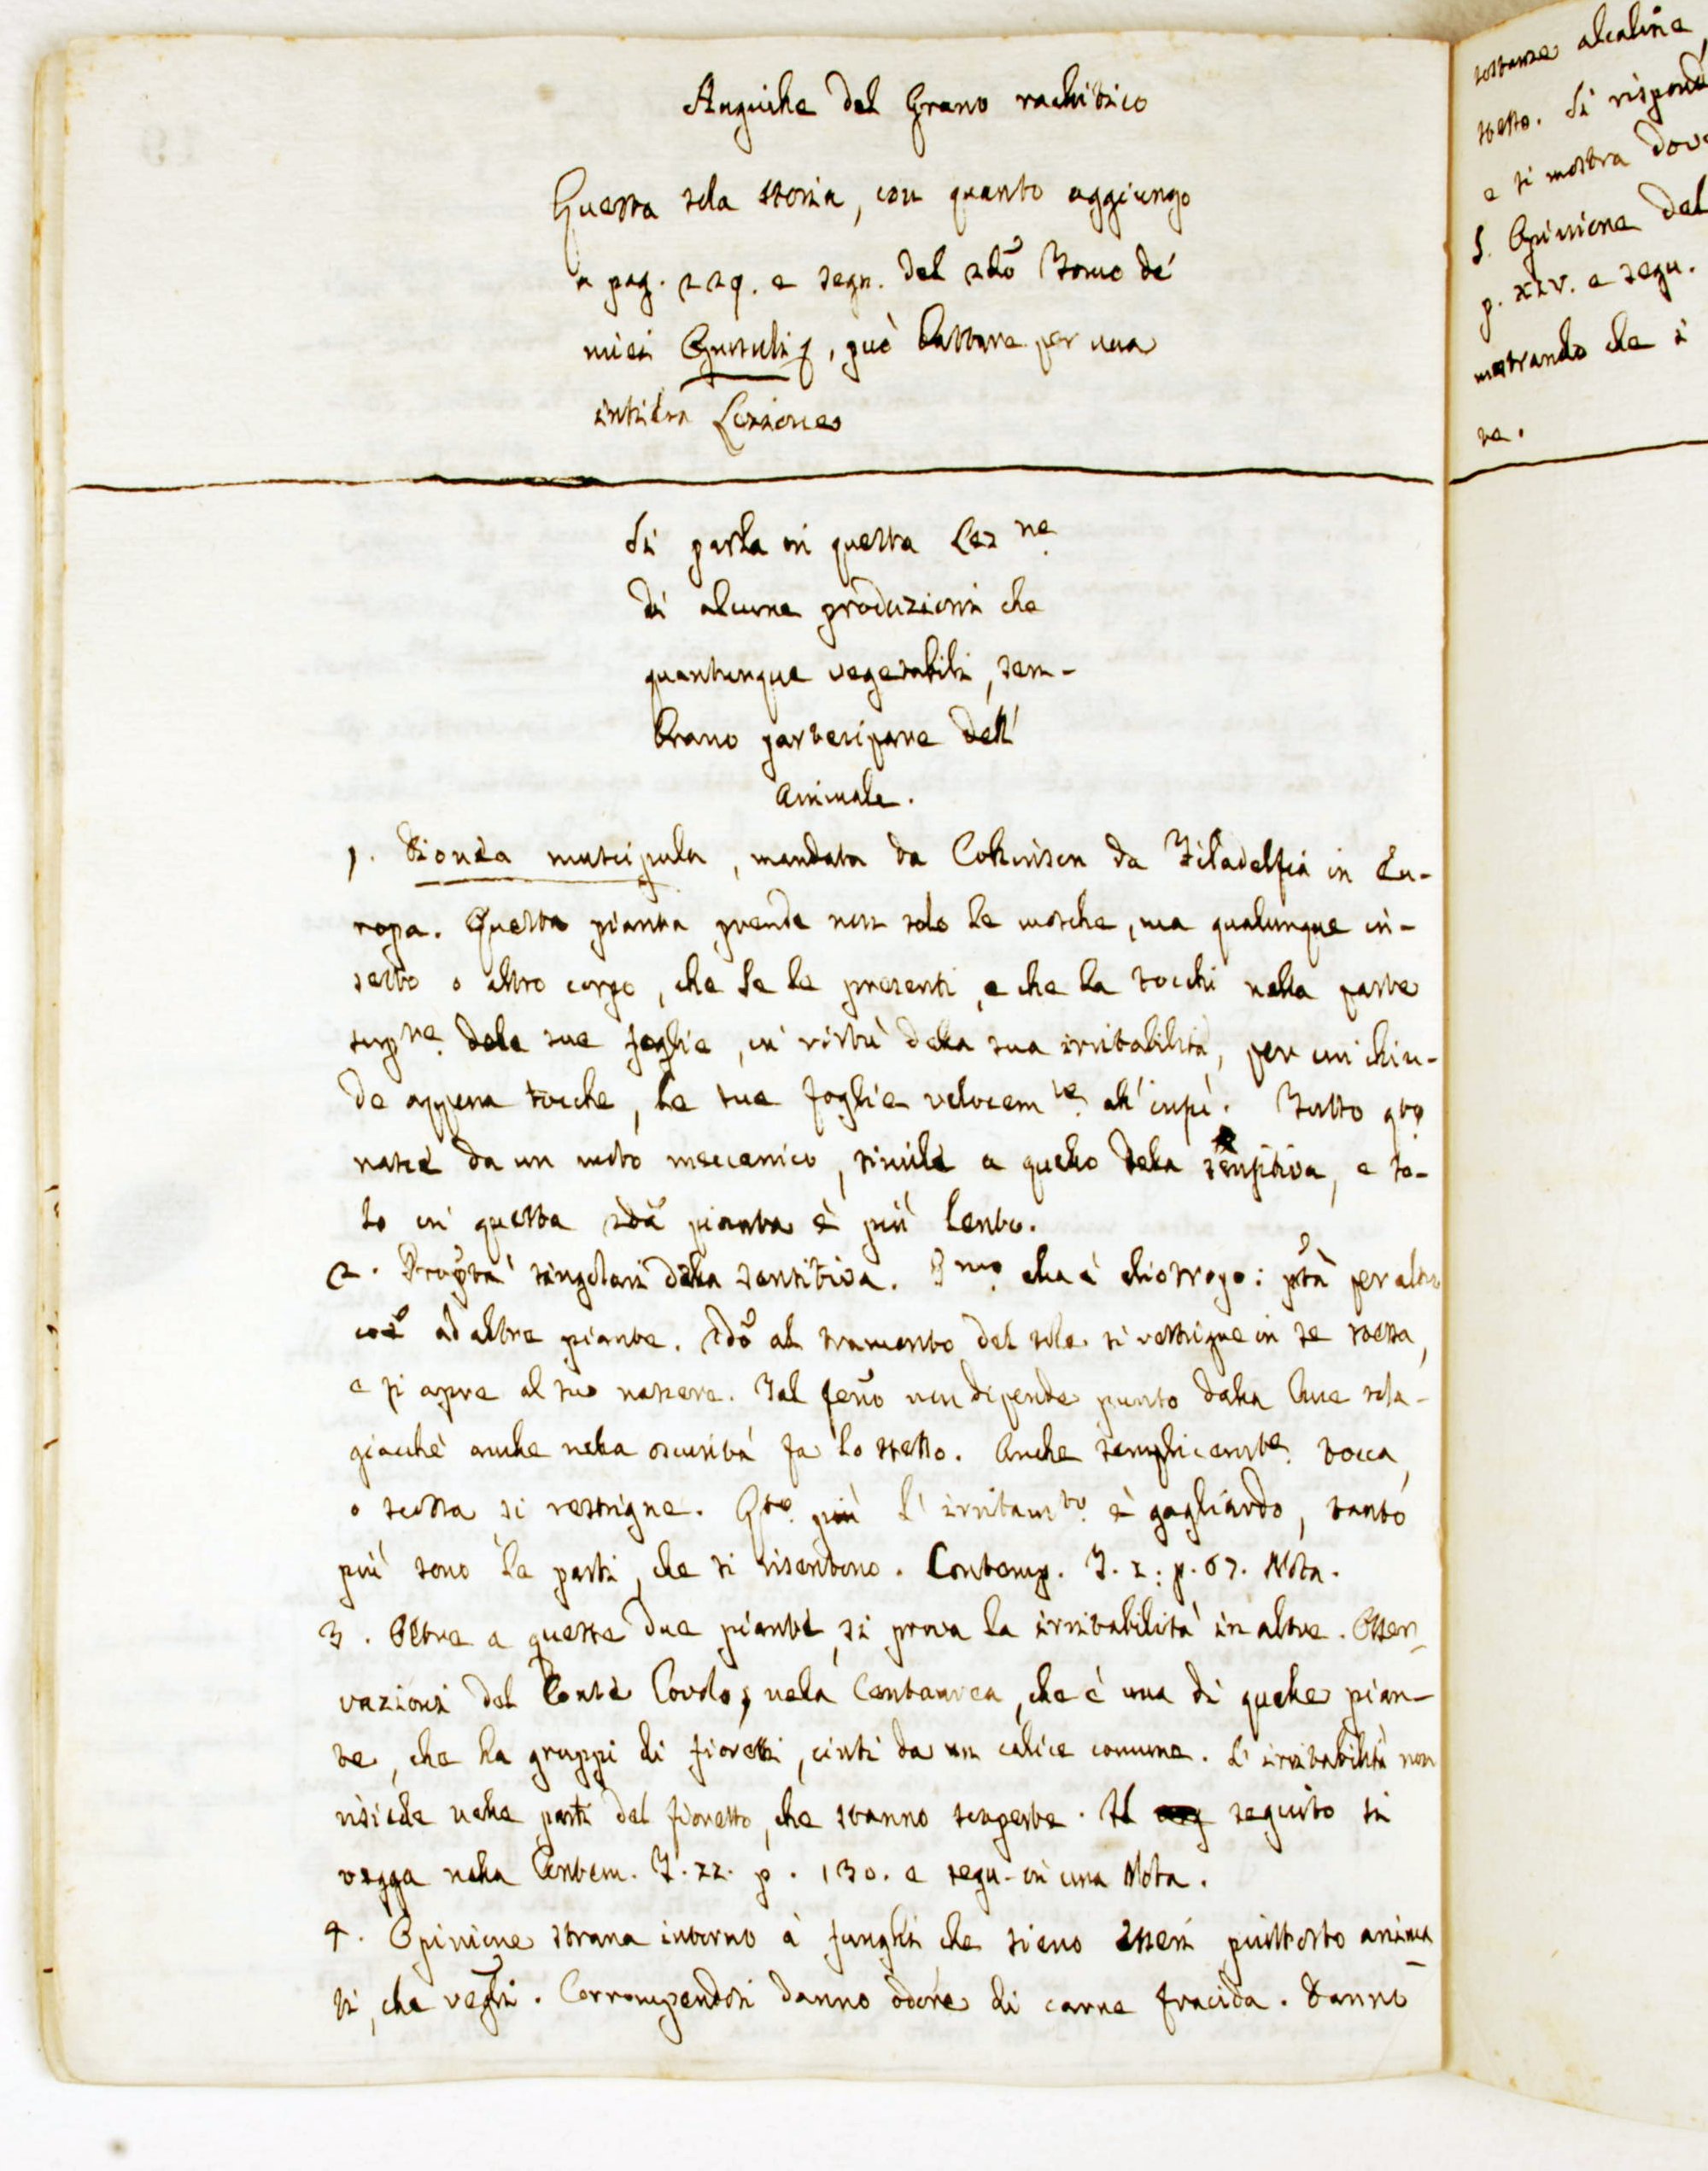 Anguille del Grano rachitico
Questa sola storia, con quanto aggiungo
a pag. 229. e segn. del 2do Tomo de'
miei Opuscoli, può bastare per una
intiera Lezione
Si parla in questa Lezne
di alcune produzioni che
quantunque vegetabili, sem-
brano partecipare dell'
Animale.
1. Dionea muscipula, mandata da Collinson da Filadelfia in Eu-
ropa. Questa pianta prende non solo le mosche, ma qualunque in-
setto o altro corpo, che se le presenti, e che la tocchi nella parte
supre delle sue foglie, in virtù della sua irritabilità, per cui chiu-
de appena tocche, le sue foglie velocemte all'insù. Tutto qto
nasce da un moto meccanico, simile a quello della sensitiva, e so-
lo in questa 2da pianta è più lento.
2. Proptà singolari della sensitiva. Pmo che è : per altro
coe ad altre piante. 2do al tramonto del sole si restrigne in se stessa,
e si apre al suo nascere. Tal feno non dipende punto dalla luce sola-
giacchè anche nella oscurità fa lo stesso. Anche semplicemte tocca,
o scossa si restrigne. Qto più l'irritamto è gagliardo, tanto
più sono le parti, che si risentono. Contemp. T. I. p. 67. Nota.
3. Oltre a queste due piante, si prova la irritabilità in altre. Osser-
vazioni del Conte Covolo, nella Centaurea, che è una di quelle pian-
te, che ha gruppi di fioretti, cinti da un calice comune. L'irritabilità non
risiede nelle parti del fioretto, che stanno scoperte. Il seguito si
vegga nella Contem. T. II. p. 130. e segu. in una Nota.
4. Opinione strana intorno a' funghi che sieno esseri piuttosto anima
li, che vegli. Corrompendosi danno odore di carne fracida. Danno
sostanze alcaline,
stesso. Si rispond
e si mostra dov
5. Opinione del
p. XIV. e segu.
mostrando che i
re.